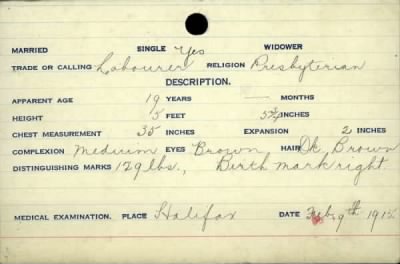 MARRIED SINGLE Yes WIDOWER
TRADE OR CALLING Labourer RELIGION Presbyterian
DESCRIPTION.
APPARENT AGE 19 YEARS — MONTHS
HEIGHT 5 FEET INCHES
CHEST MEASUREMENT 35 INCHES EXPANSION 2 INCHES
COMPLEXION Medium EYES Brown HAIR Dk. Brown
DISTINGUISHING MARKS 129 lbs., Birth mark right
MEDICAL EXAMINATION. PLACE Halifax DATE Feb. 9th